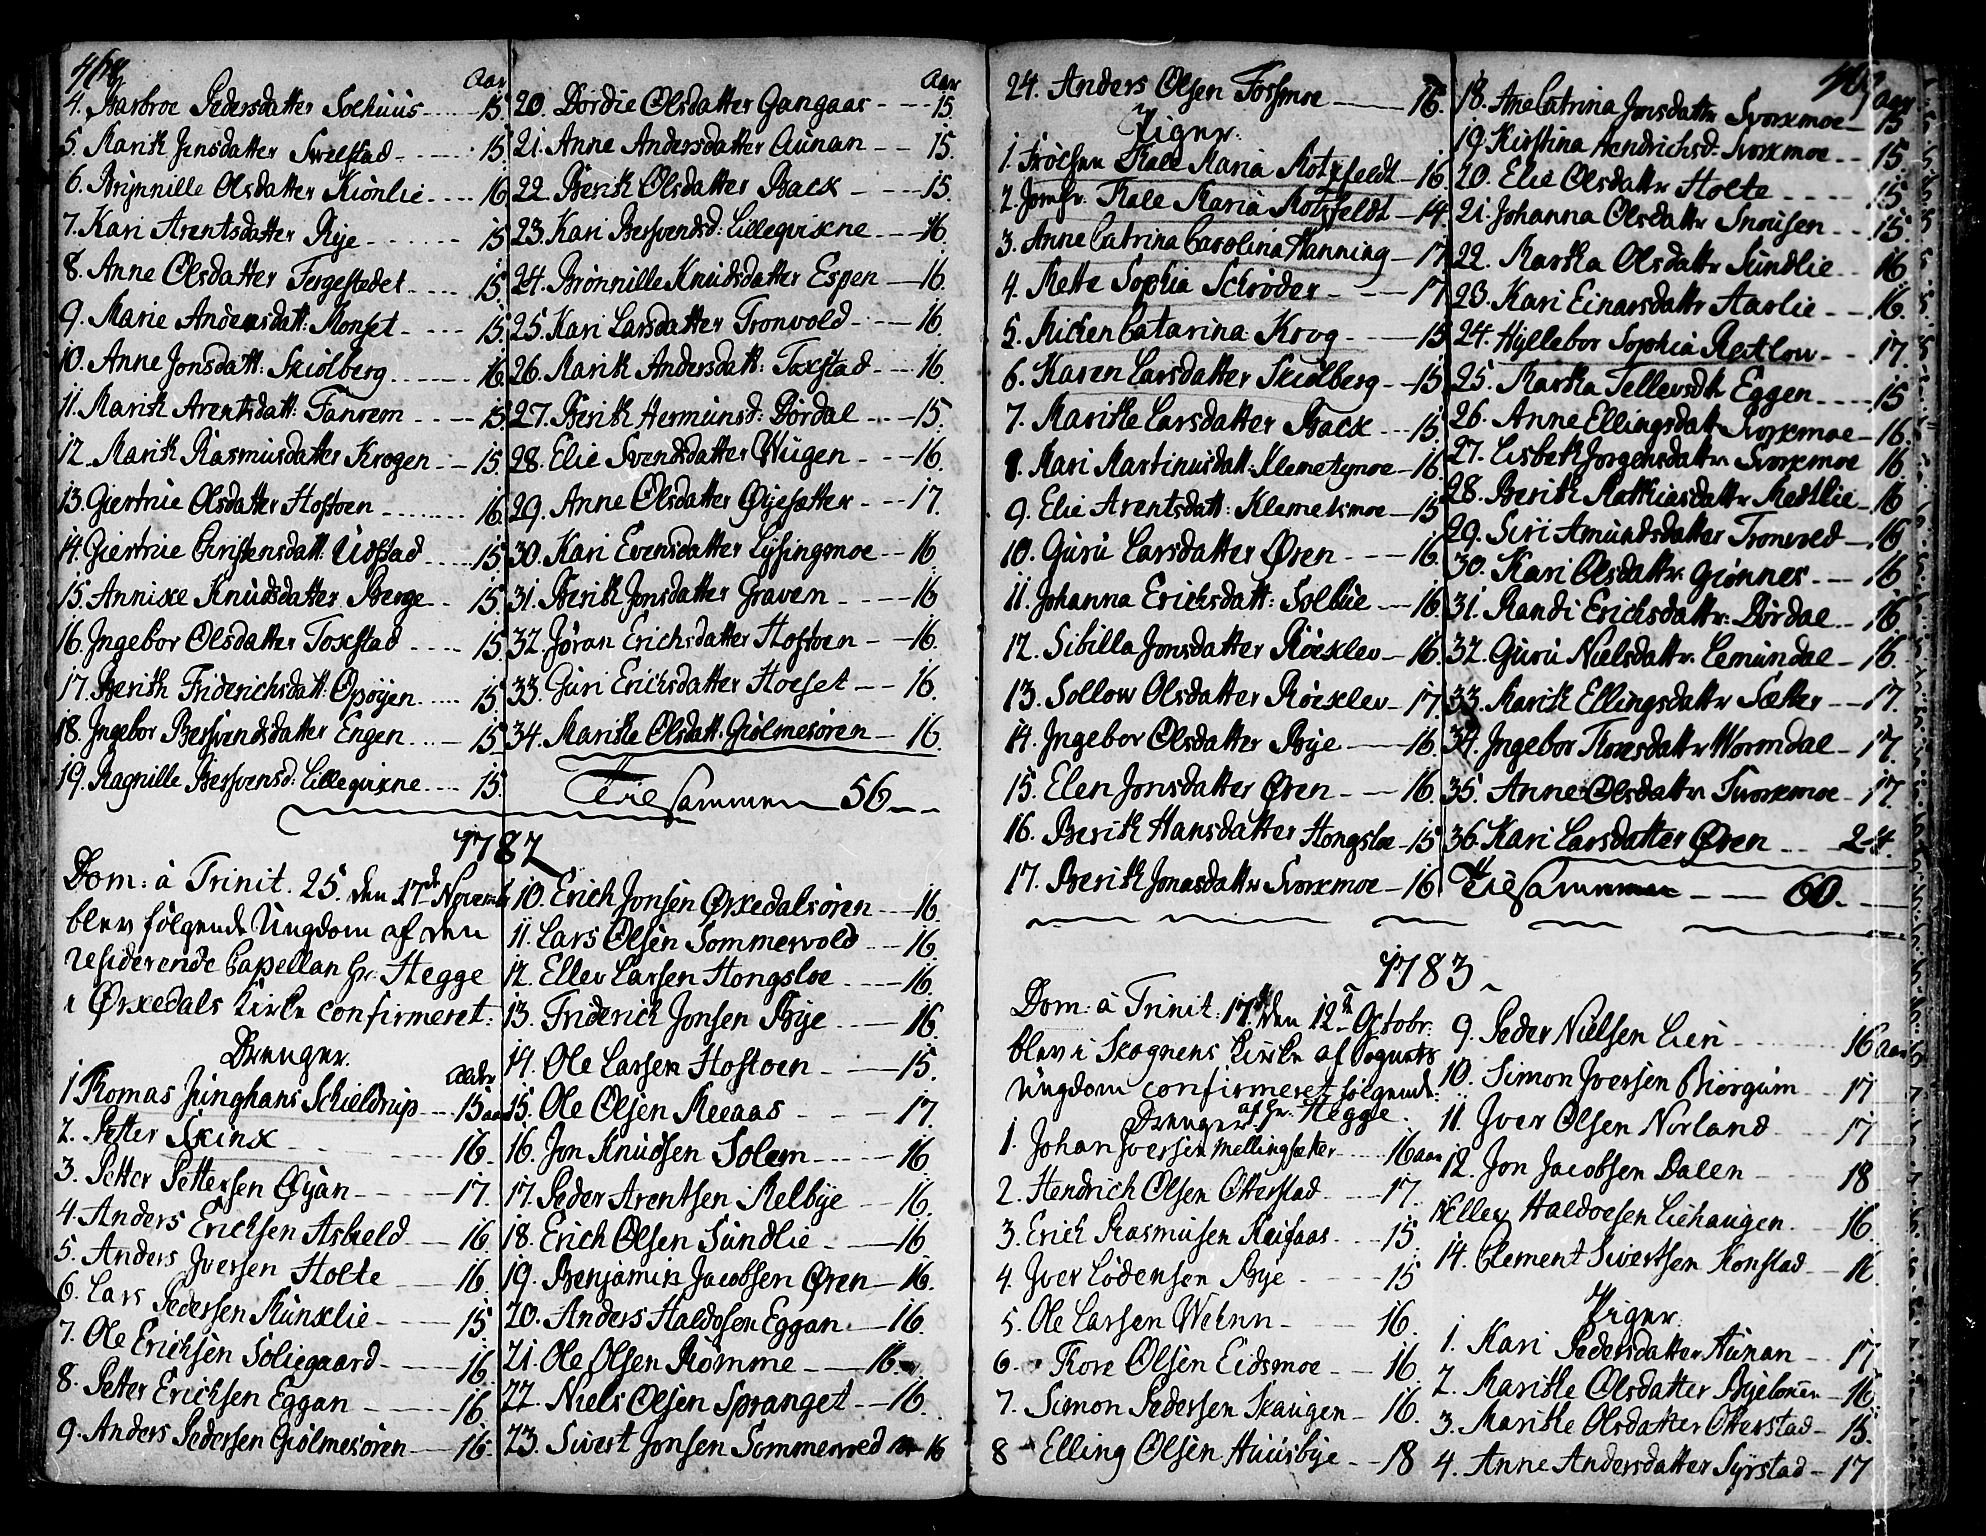 Aar
4. Barbroe Pedersdatter Solhuus 15
5. Marith Jensdatter Svelstad 15
6. Brynnille Olsdatter Kiönlie 16
7. Kari Arentsdatter Rye 15
8. Anne Olsdatter Fergestedet 15
9. Marie Andersdatt: Monset 15
10. Anne Jonsdatt: Skiölberg 16
11. Marith Arentsdatt: Fanrem 15
12. Marith Rasmusdatter Krogen 15
13. Giertrue Olsdatter Hoftoen 16
14. Giertrue Christensdatt Udstad 15
15. Annixe Knudsdatter Berge 15
16. Ingebor Olsdatter Toxstad 15
17. Berith Friderichsdatt: Opöyen 15
18. Ingebor Bersvendsdatter Engen 15
19. Ragnille Bersvensd: Lilleqvixne 15
Aar
20. Dordie Olsdatter Gangaas 15
21. Anne Andersdatter Aunan 15
22. Berith Olsdatter Back 15
23. Kari Bersvendsd: Lilleqvixne 16
24. Brönnille Knudsdatter Espen 16
25. Kari Larsdatter Tronvold 16
26. Marith Andersdatt: Toxstad 16
27. Berith Hermunsd: Dördal 15
28. Elie Svendsdatter Wugen 16
29. Anne Olsdatter Øyesætter 17
30. Kari Evensdatter Lysingsmoe 16
31. Berith Jonsdatter Graven 16
32. Jöran Erichsdatter Hoftoen 16
33. Guri Erichsdatter Hoeset 16
34. Marithe Olsdatt: Giölmesören 16
Tilesammen 56
1782
Dom: à Trinit. 25. den 17de Novemb
blev fölgende Ungdom af den
residerende Capellan hr. Hegge
i Ørkedals Kirke confirmeret:
Drenger.
Alder
1 Thomas Junghans Schieldrup 15 aar
2. Petter Skinx 16
3. Petter Pettersen Øyan 17
4. Anders Erichsen Asbield 16
5. Anders Jversen Holte 16
6. Lars Pedersen Runxlie 15
7. Ole Erichsen Soliegaard 16
8. Petter Erichsen Eggan 16
9. Anders Pedersen Giölmesören 16
10. Erich Jonsen Ørxedalsören 16
11. Lars Olsen Sommervold 16
12. Ellev Larsen Hongsloe 16
13. Friderich Jonsen Rye 16
14. Ole Larsen Hoftoen 15
15. Ole Olsen Reeaas 17
16. Jon Knudsen Solem 16
17. Peder Arentsen Melbye 16
18. Erich Olsen Sundlie 16
19. Benjamin Jacobsen Øren 16
20. Anders Haldosen Eggan 16
21. Ole Olsen Römme 16
22. Niels Olsen Spranget 16
23. Sivert Jonsen Sommervold 16
24. Anders Olsen Fossmoe 16
Piger.
1. Fröchen Thale Maria Motzfeldt 16
2. Jomfr. Thale Maria Motzfeldt 14
3. Anne Catrina Carolina Hanning 17
4. Mette Sophia Schröder 17
5. Micken Catarina Krog 15
6. Karen Larsdatter Skiolberg 15
7. Marithe Larsdatter Back 15
8. Mari Martinusdatt: Klemetsmoe 16
9. Elie Arentsdatt: Klemetsmoe 15
10. Guru Larsdatter Øren 16
11. Johanna Erichsdatt: Solbue 16
12. Sibilla Jonsdatter Röexlev 16
13. Sollow Olsdatter Röexlev 17
14. Ingebor Olsdatter Rye 16
15. Elen Jonsdatter Øren 16
16. Berith Hansdatter Hongsloe 15
17. Berith Jonasdattr Svorxmoe 16
Aar
18. Ane Catrina Jonsdattr Svorxmoe 15
19. Kirstina Hendrichsd: Svorxmoe 15
20. Elie Olsdattr Holte 15
21. Johanna Olsdattr Snousen 15
22. Martha Olsdattr Sundlie 16
23. Kari Einarsdattr Aarlie 16
24. Hyllebor Sophia Reitlow 17
25. Martha Tellevsdtr Eggen 15
26. Anne Ellingsdatt Svorxmoe 16
27. Lisbeth Jorgensdattr Svorxmoe 16
28. Berith Mathiasdattr Medtlie 16
29. Siri Amundsdatter Tronvold 16
30. Kari Olsdattr Giönnes 16
31. Randi Erichsdattr Dördal 16
32. Guru Nielsdattr Lemundal 16
33. Marith Ellingsdattr Sætter 17
34. Ingebor Thoresdattr Wormdal 17
35. Anne Olsdattr Svorxmoe 17
36. Kari Larsdatter Øren 24
Tilesammen 60.
1783
Dom: à Trinit: 17de den 12te Octobr.
blev i Skognens Kirke af Sognets
Ungdom confirmeret fölgende:
af hr. Hegge
Drenger.
1. Johan Jversen Mellingsætter 16 aar
2. Hendrich Olsen Otterstad 17
3. Erich Rasmusen Reifaas 15
4. Jver Lodensen Rye 15
5. Ole Larsen Wehnn 16
6. Thore Olsen Eidsmoe 16
7. Simon Pedersen Skaugen 16
8 Elling Olsen Huusbye 18
9. Peder Nielsen Lien 16 aar
10. Simon Jversen Biörgum 17
11. Jver Olsen Norland 17
12. Jon Jacobsen Dalen 18
13 Ellev Haldoesen Liehaugen 16
14. Clement Sivertsen Konstad 16
Piger
1. Kari Pedersdatter Aunan 17
2. Marithe Olsdatter Ryelouen 16
3. Marithe Olsdatter Otterstad 15
4. Anne Andersdatter Syrstad 17